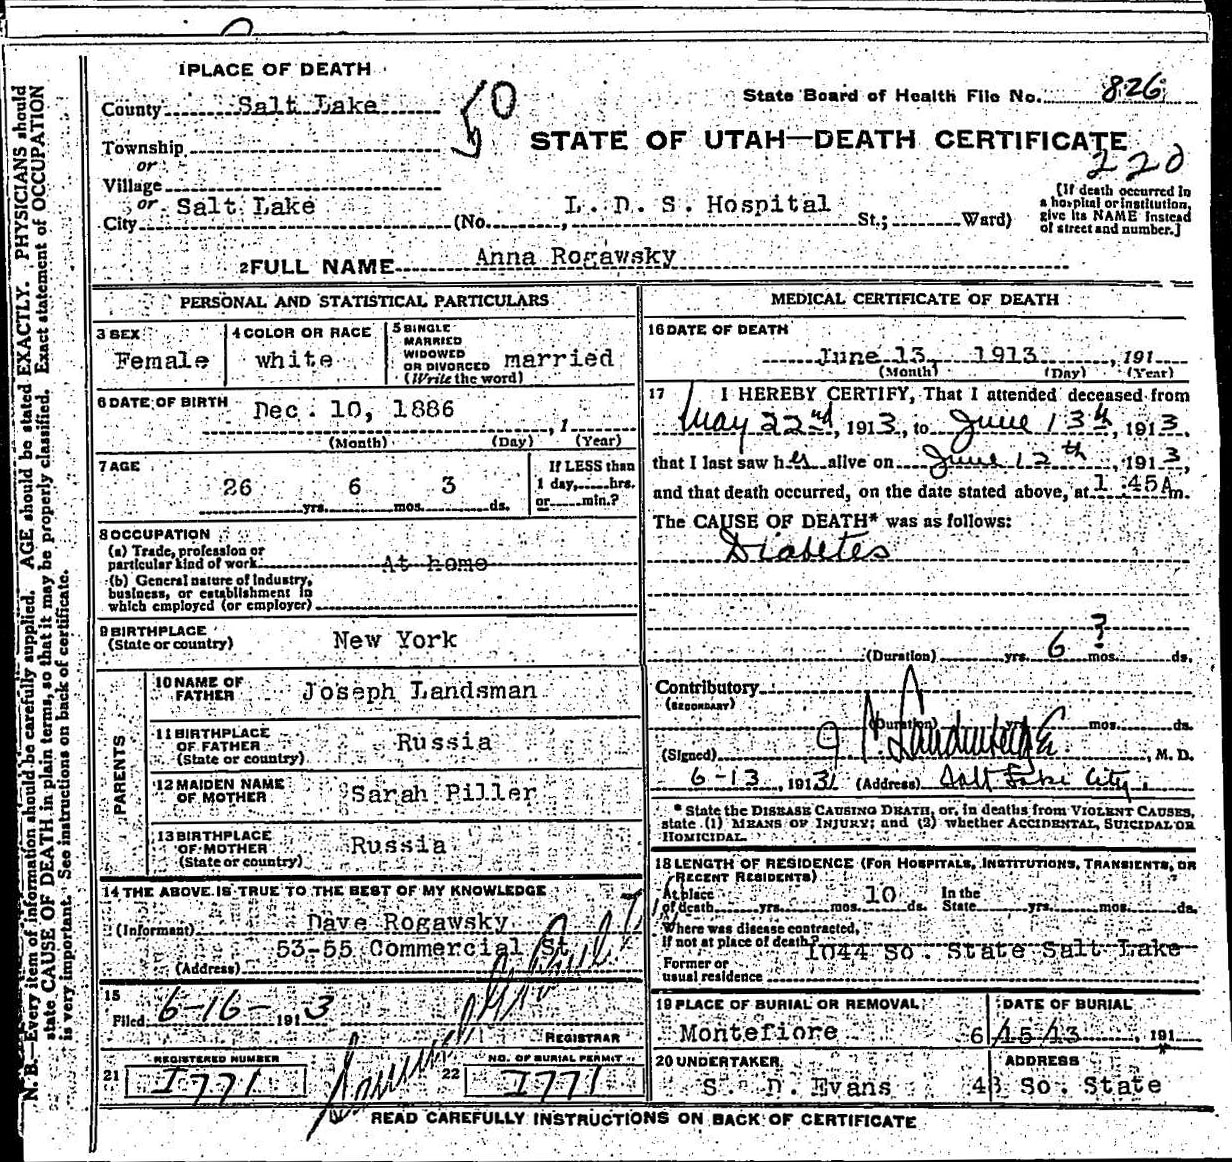 N. B.—Every item of information should be carefully supplied. AGE should be stated EXACTLY. PHYSICIANS should
state CAUSE OF DEATH in plain terms, so that it may be properly classified. Exact statement of OCCUPATION
is very important. See instructions on back of certificate.
1 PLACE OF DEATH
County Salt Lake
50
Township
or
Village
or
City Salt Lake
(No. L. D. S. Hospital St.; Ward)
State Board of Health File No. 826
STATE OF UTAH—DEATH CERTIFICATE
220
(If death occurred in
a hospital or institution,
give its NAME instead
of street and number.]
2 FULL NAME Anna Rogawsky
PERSONAL AND STATISTICAL PARTICULARS
3 SEX
Female
4 COLOR OR RACE
white
5 SINGLE
MARRIED
WIDOWED
OR DIVORCED
(Write the word)
married
6 DATE OF BIRTH Dec. 10, 1886
, 1
(Month) (Day) (Year)
7 AGE
26 yrs. 6 mos. 3 ds.
If LESS than
1 day, hrs.
or min.?
8 OCCUPATION
(a) Trade, profession or
particular kind of work At home
(b) General nature of industry,
business, or establishment in
which employed (or employer)
9 BIRTHPLACE
(State or country) New York
PARENTS
10 NAME OF
FATHER Joseph Landsman
11 BIRTHPLACE
OF FATHER
(State or country) Russia
12 MAIDEN NAME
OF MOTHER Sarah Piller
13 BIRTHPLACE
OF MOTHER
(State or country) Russia
14 THE ABOVE IS TRUE TO THE BEST OF MY KNOWLEDGE
(Informant) Dave Rogawsky
53-55 Commercial St
(Address)
15
Filed 6-16- 1913
REGISTRAR
REGISTERED NUMBER
21 I771
NO. OF BURIAL PERMIT
22 I771
MEDICAL CERTIFICATE OF DEATH
16 DATE OF DEATH
June 13, 1913, 191
(Month) (Day) (Year)
17 I HEREBY CERTIFY, That I attended deceased from
May 22nd, 1913, to June 13th, 1913,
that I last saw her alive on June 12th, 1913,
and that death occurred, on the date stated above, at 1:45A m.
The CAUSE OF DEATH* was as follows:
Diabetes
(Duration) yrs. 6 ? mos. ds.
Contributory
(SECONDARY)
(Duration) yrs. mos. ds.
(Signed) , M. D.
6-13, 1913 (Address) Salt Lake City
* State the DISEASE CAUSING DEATH, or, in deaths from VIOLENT CAUSES,
state (1) MEANS OF INJURY; and (2) whether ACCIDENTAL, SUICIDAL OR
HOMICIDAL.
18 LENGTH OF RESIDENCE (FOR HOSPITALS, INSTITUTIONS, TRANSIENTS, OR
RECENT RESIDENTS)
At place
of death yrs. mos. 10 ds. In the
State yrs. mos. ds.
Where was disease contracted,
If not at place of death?
1044 So. State Salt Lake
Former or
usual residence
19 PLACE OF BURIAL OR REMOVAL
Montefiore
DATE OF BURIAL
6/15/13, 191
20 UNDERTAKER
S. D. Evans
ADDRESS
48 So. State
READ CAREFULLY INSTRUCTIONS ON BACK OF CERTIFICATE